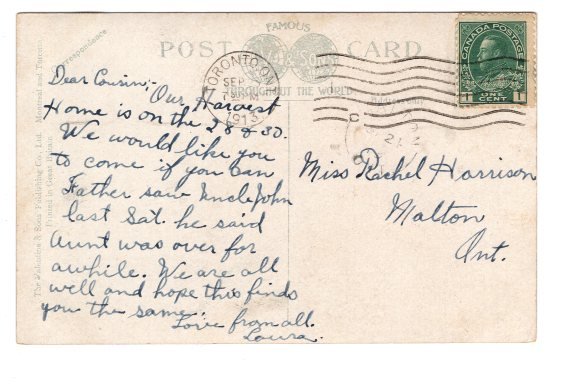 FAMOUS
POST CARD
THROUGHOUT THE WORLD
Correspondence
The Valentine & Sons Publishing Co., Ltd. Montreal and Toronto
Printed in Great Britain.
TORONTO, ONT.
SEP
1913
CANADA POSTAGE
1 ONE CENT 1
Dear Cousin;-
Our Harvest
Home is on the 28 & 30.
We would like you
to come if you can
Father saw Uncle John
last Sat. he said
Aunt was over for
awhile. We are all
well and hope this finds
you the same.
Love from all.
Laura.
Miss Rachel Harrison
Malton
Ont.